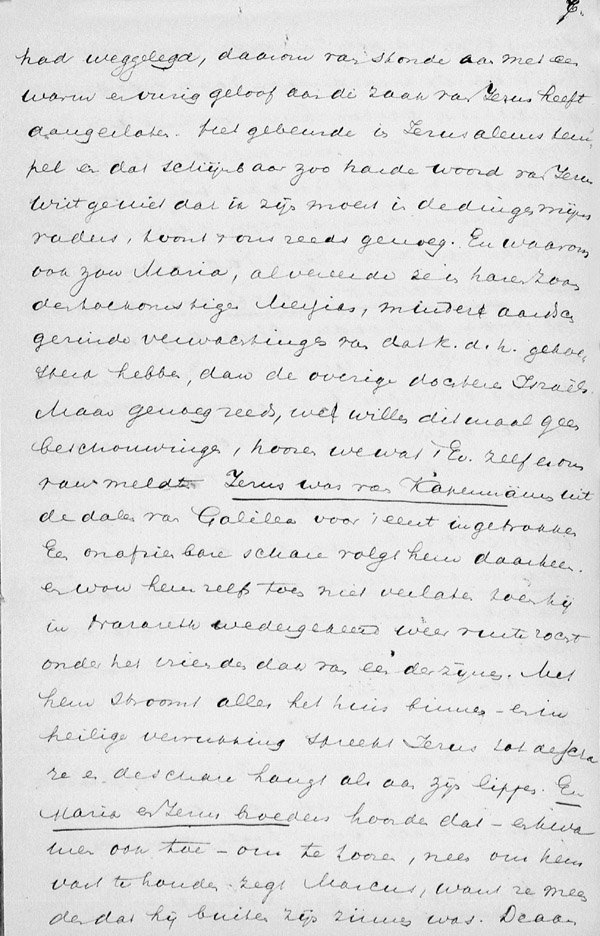 7.
had weggelegd, daarom van stonde aan met een
warm en vurig geloof aan de zaak van Jezus heeft
aangesloten. Het gebeurde in Jeruzalems tem-
pel en dat schijnbaar zoo harde woord van Jezus
wist ge niet dat ik zijn moest in de dingen mijns
vaders, toont ons reeds genoeg. En waarom
ook zou Maria, al vereerde ze in haren zoon
den toekomstigen Messias, minder aardsch
gezinde verwachtingen van dat k. d. h. gekoe-
sterd hebben, dan de overige dochters Israëls.
Maar genoeg reeds, we willen ditmaal geen
beschouwingen, hooren we wat 't Ev. zelf er ons
van meldt. Jezus was van Kapernaüm uit
de dalen van Galilea voor 't eerst ingetrokken
Een onafzienbare schare volgt hem daarheen.
en wou hem zelfs toen niet verlaten toen hij
in Nazareth wedergekeerd weer rust zocht
onder het vriendendak van een der zijnen. Met
hem stroomt alles het huis binnen – en in
heilige verrukking spreekt Jezus tot de scha
re en de schare hangt als aan zijn lippen. En
Maria en Jezus broeders hoorden dat – en kwa
men ook toe – om te hooren, neen om hem
vast te houden zegt Marcus, want ze meen
den dat hij buiten zijn zinnen was. Daar